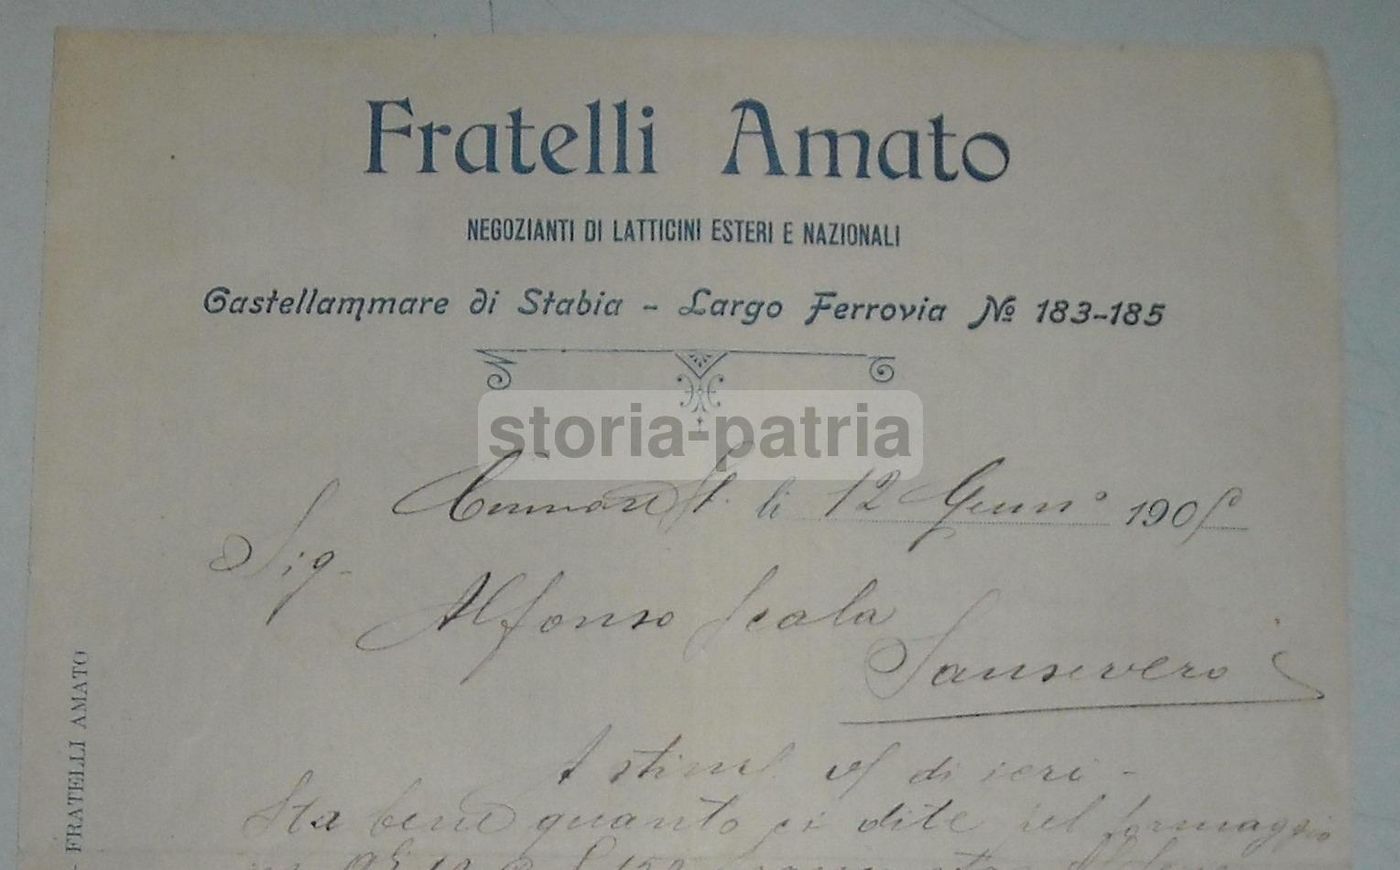 Fratelli Amato
NEGOZIANTI DI LATTICINI ESTERI E NAZIONALI
Castellammare di Stabia - Largo Ferrovia Nº 183-185
storia-patria
li 12 1905
Sig.
Alfonso Scala
Sansevero
di ieri -
Sta bene quanto ci dite del formaggio
- FRATELLI AMATO